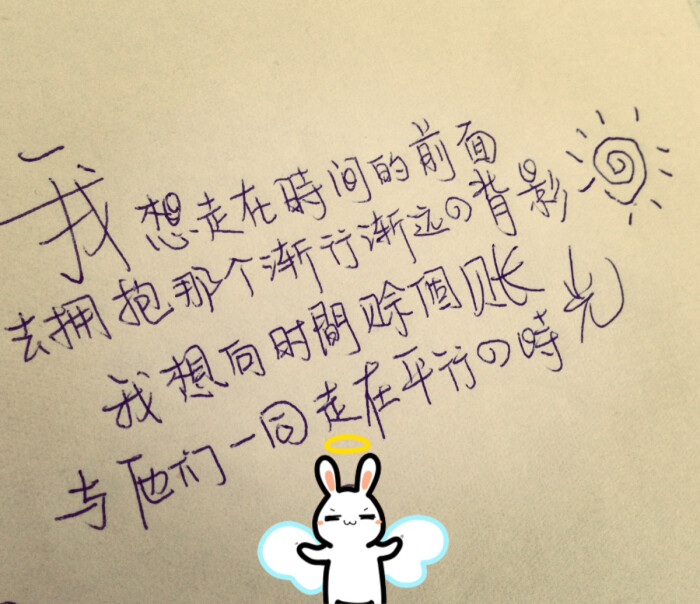 我想走在時间的前面
去拥抱那个渐行渐远の背影
我想向时間赊個账
与他们一同走在平行の時光